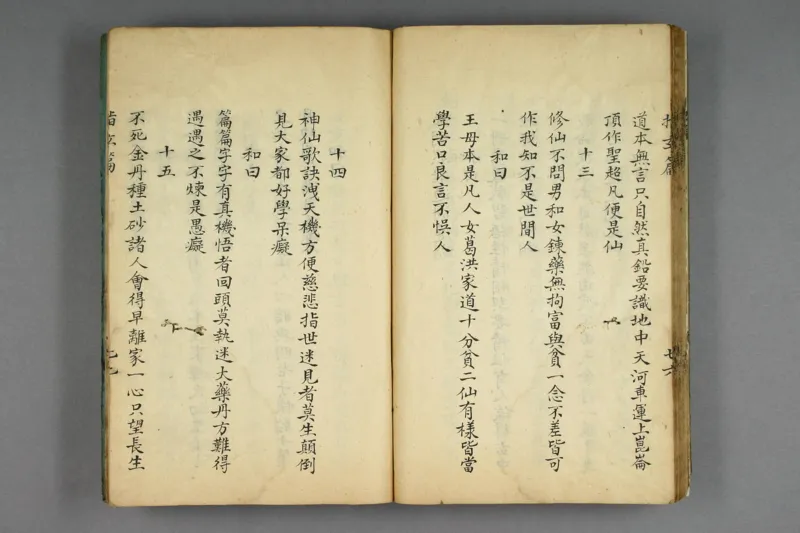 道本無言只自然真鉛要識地中天河車運上崑崙
頂作聖超凡便是仙
十三
修仙不問男和女鍊藥無拘富與貧一念不差皆可
作我知不是世間人
和曰
王母本是凡人女葛洪家道十分貧二仙有樣皆當
學苦口良言不悞人
十四
神仙歌訣洩天機方便慈悲指世迷見者莫生顛倒
見大家都好學呆癡
和曰
篇篇字字有真機悟者回頭莫執迷大藥丹方難得
遇遇之不煉是愚癡
十五
不死金丹種土砂諸人會得早離家一心只望長生